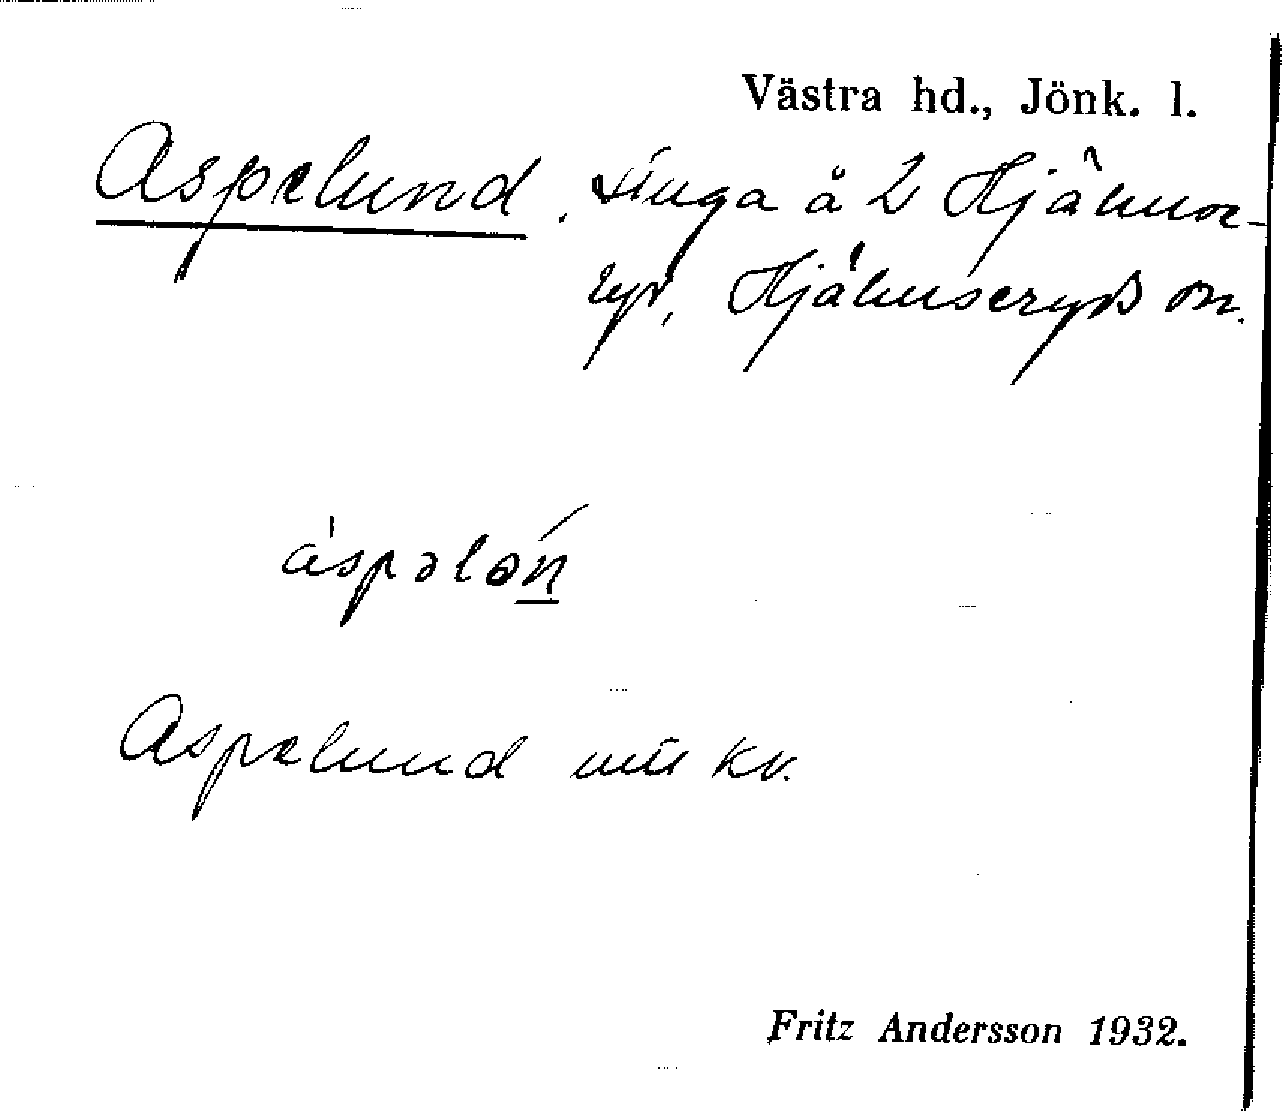 Västra hd., Jönk. l.
Aspelund. stuga å L Hjälmse-
ryd, Hjälmseryds sn.
áspəlán
Aspelund mtl kv.
Fritz Andersson 1932.